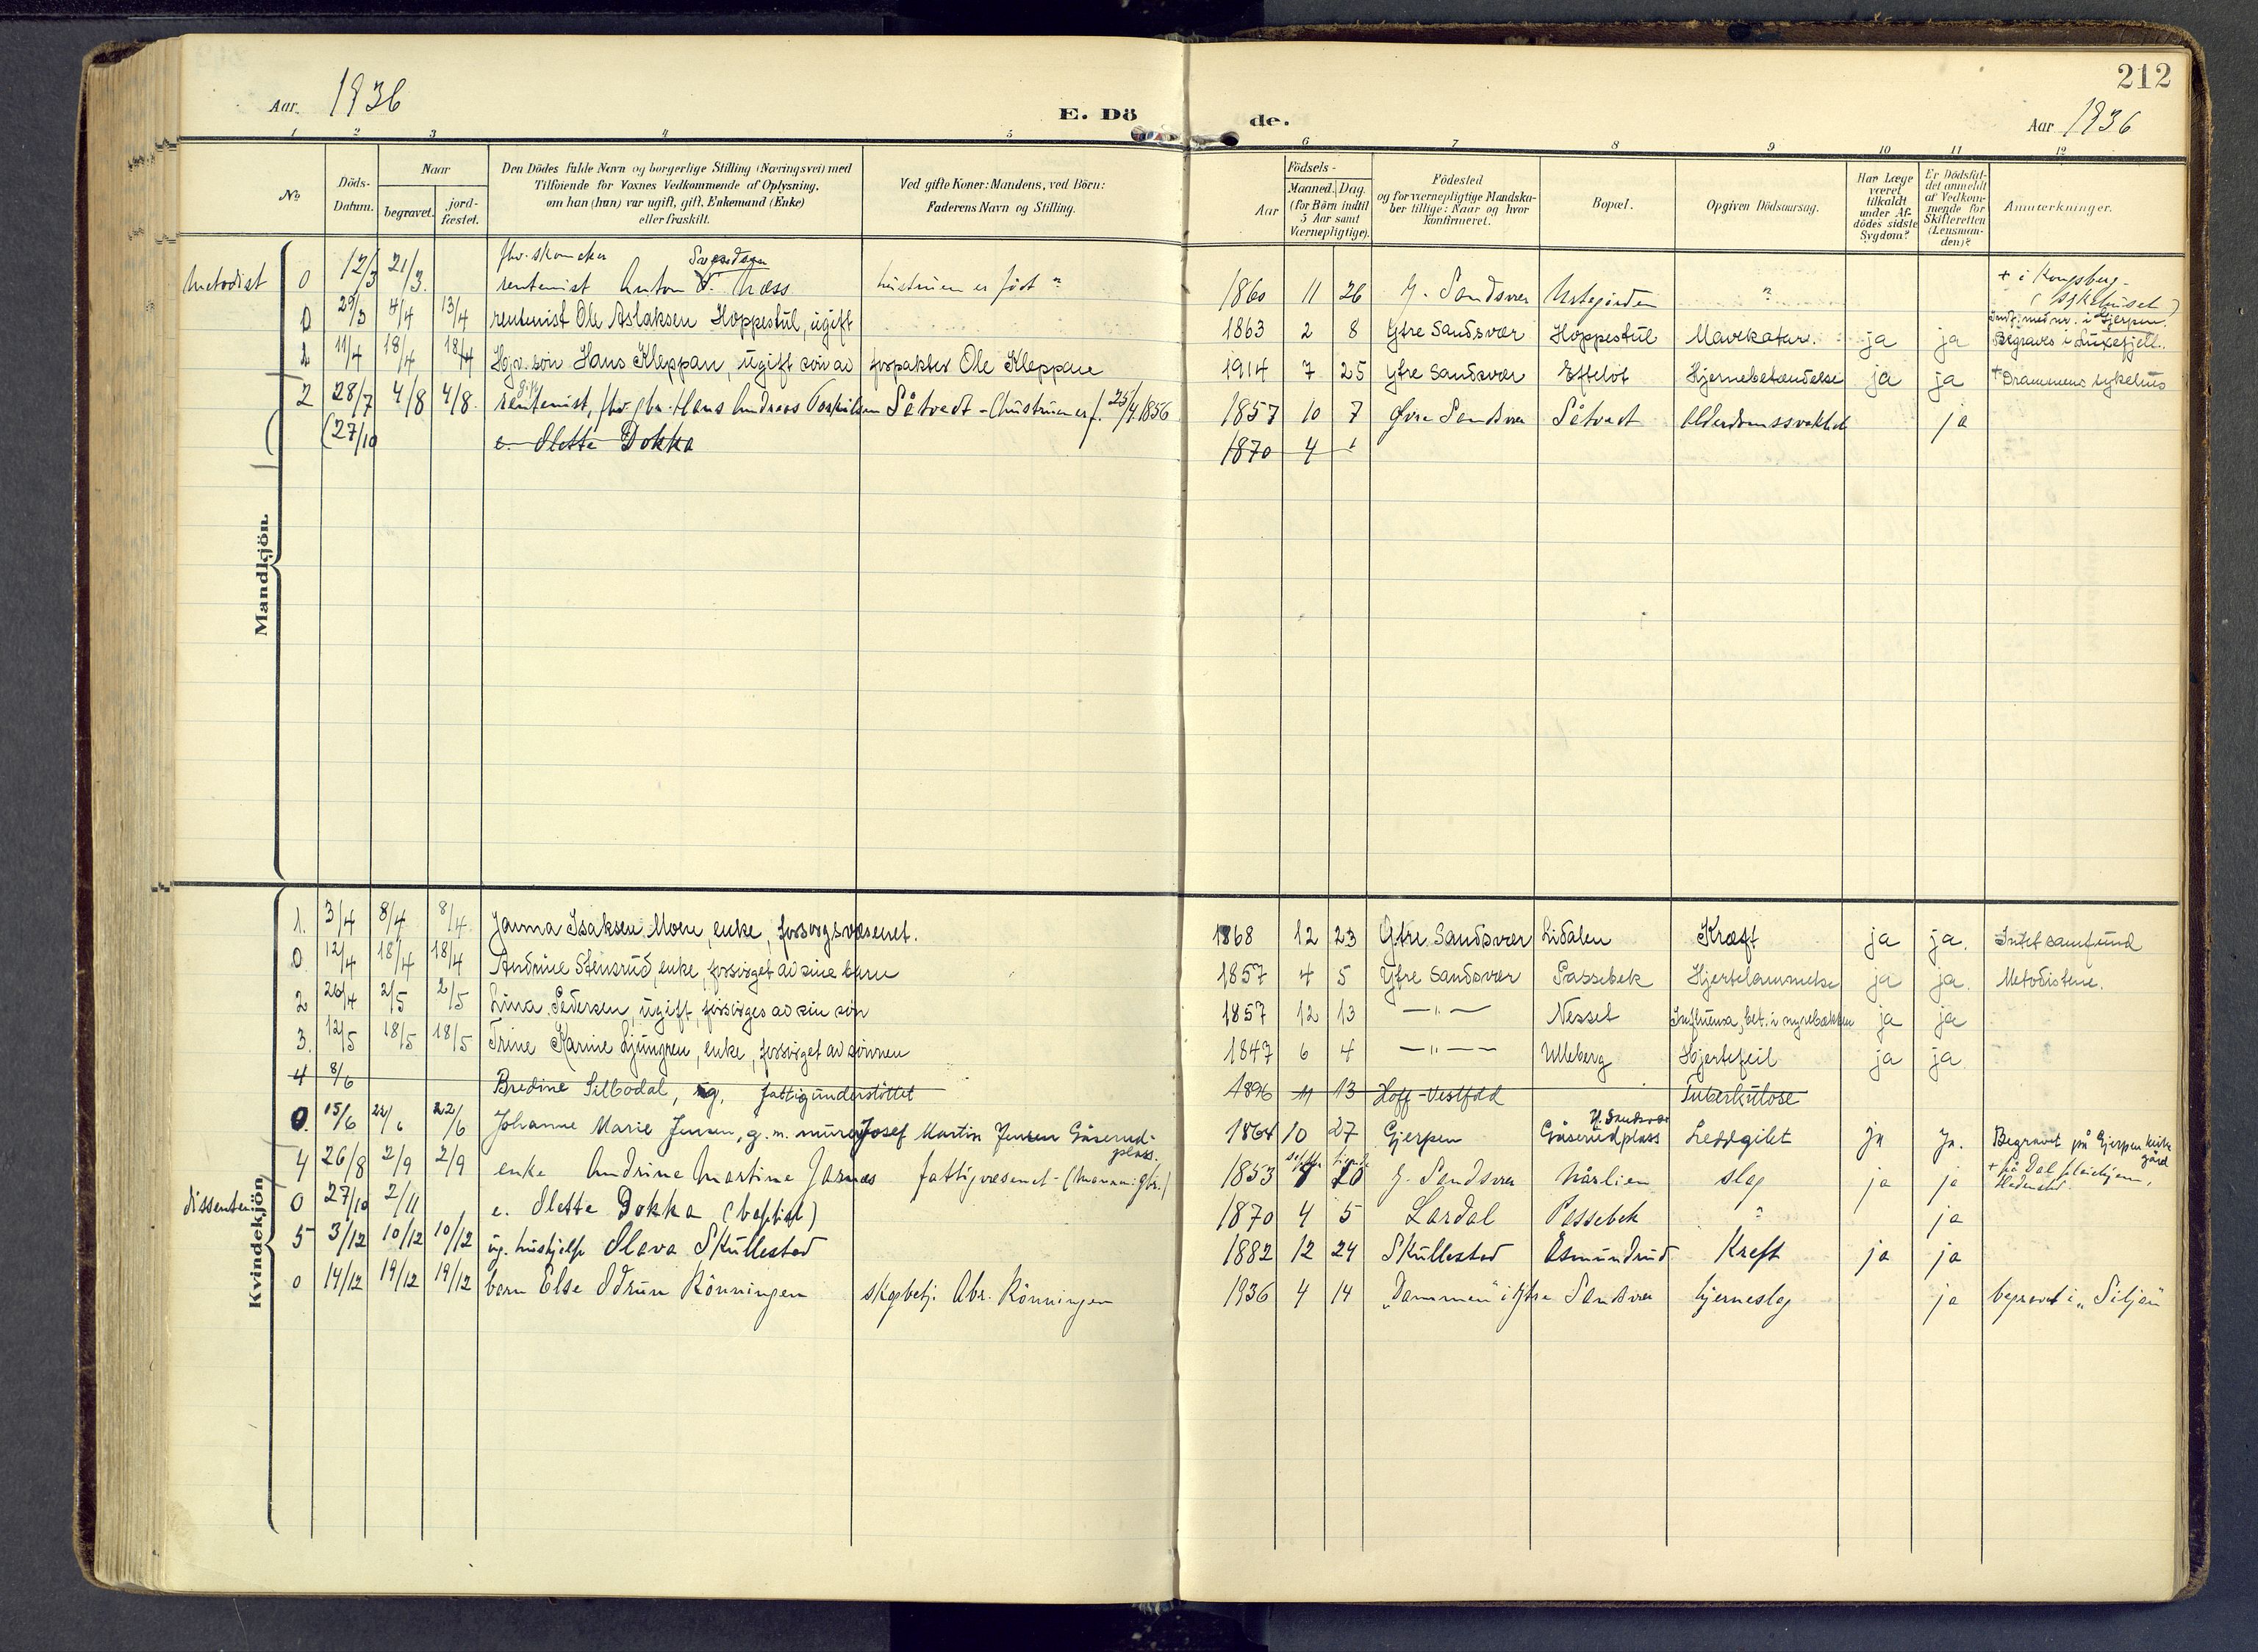 212
Aar. 1936
E. Dö
de.
Aar 1936
1 2 3 4 5 6 7 8 9 10 11 12
No
Döds-Datum.
Naar
begravet.
jord-fæstet.
Den Dödes fulde Navn og borgerlige Stilling (Næringsvei) med
Tilföiende for Voxnes Vedkommende af Oplysning,
om han (hun) var ugift, gift, Enkemand (Enke)
eller fraskilt.
Ved gifte Koner: Mandens, ved Börn:
Faderens Navn og Stilling.
Födsels-
Aar
Maaned. Dag.
(for Börn indtil
5 Aar samt
Værnepligtige).
Födested
og for værnepligtige Mandska-
ber tillige: Naar og hvor
konfirmeret.
Bopæl.
Opgiven Dödsaarsag.
Har Læge
været
tilkaldt
under Af-
dödes sidste
Sygdom?
Er Dödsfal-
det anmeldt
af Vedkom-
mende for
Skifteretten
(Lensman-
den)?
Anmærkninger.
Mandkjön.
Metodist 0 12/3 21/3. rentenist Anton Næss hustruen er født " 1860 11 26 Y. Sandsvær " + i Kongsberg (sykehuset)
0 29/3 4/4 13/4 rentenist Ole Aslaksen Hoppestul, ugift 1863 2 8 Ytre Sandsvær Hoppestul Mavekatar. ja ja Begraves i Luxefjell.
1 11/4 18/4 18/4 Hans Kleppan, ugift søn av forpakter Ole Kleppan 1914 7 25 Ytre Sandsvær Efteløt Hjernebetændelse ja ja + Drammens sykehus
2 28/7 4/8 4/8. rentenist, fhv. gbr. Hans Andreas Torkildsen Såtvedt - (hustruen er f. 25/4 1856 1857 10 7 Øvre Sandsvær Såtvedt Alderdomssvakhet ja
(27/10 e. Olette Dokka 1870 4
Kvindekjön.
1. 3/4 8/4 8/4 Janna Isaksen Moen, enke, forsorgsvæsenet. 1868 12 23 Ytre Sandsvær Lidalen Kræft ja ja. Intet samfund
0. 12/4 18/4 18/4 Andrine Stensrud, enke, forsørget av sine barn 1857 4 5 Ytre Sandsvær Passebek Hjertelammelse ja ja. Metodistene.
2 26/4 2/5 2/5 Lina Pedersen, ugift, forsørges av sin søn 1857 12 13 —"— Nesset Influensa, bet. i nyrebækken ja ja
3. 12/5 18/5 18/5 Trine Karine Ljungren, enke, forsørget av sønnen 1847 6 4 —"— Ulleberg Hjertefeil ja ja
4 8/6 Bredine Selbodal, ug. fattigunderstøttet 1896 11 13 Hoff-Vestfold Tuberkulose
0. 15/6 22/6 22/6 Johanne Marie Jensen, g. m. murer Josef Martin Jensen Gåserud-plass. 1864 10 27 Gjerpen Gåserudplass Y. Sandsvær Leddgikt ja ja. Begravet på Gjerpen kirkegård
4 26/8 2/9 2/9 enke Andrine Martine Jarnæs fattigvæsenet - (Mannen: gbr.) 1853 Y. Sandsvær Nårlien slag ja ja + på Dal pleiehjem, Hedenstad.
dissenter 0 27/10 2/11 e. Olette Dokka (baptist) 1870 4 5 Lardal Passebek " ja
5 3/12 10/12 10/12 ug. hushjelp Olava Skullestad 1882 12 24 Skullestad Åsmundrud Kreft ja ja
0 14/12 19/12 19/12 barn Else Odrun Rönningen skogbetj. Abr. Rönningen 1936 4 14 "Dammen" i Ytre Sandsvær hjerneslag ja begravet i "Siljan"